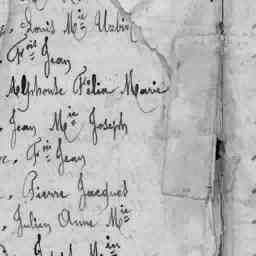 Louis Mie Urbin
Fois Jean
Alphonse Félix Marie
Jean Mie Joseph
Fois Jean
Pierre Jacques
Julien Anne Mie